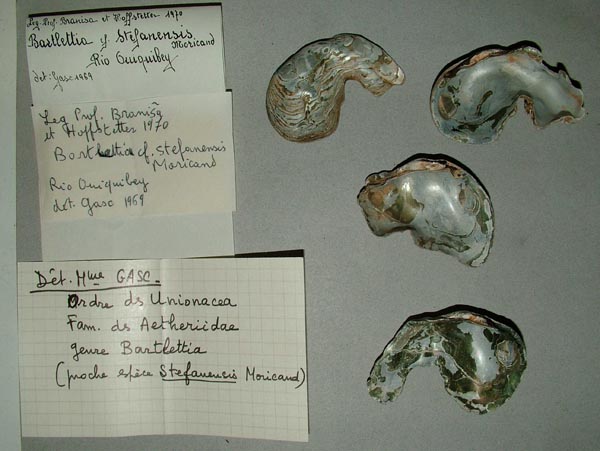 Leg. Prof. Branisa et Hoffstetter 1970
Bartlettia cf Stefanensis
Moricand
Rio Quiquibey
det. Gasc 1969
Leg Prof. Branisa
et Hoffstetter 1970
Bartlettia cf. stefanensis
Moricand
Rio Quiquibey
dét. Gasc 1969
Dét. Mme GASC.
Ordre ds Unionacea
Fam. ds Aetheriidae
genre Bartlettia
(proche espèce Stefanensis Moricand)